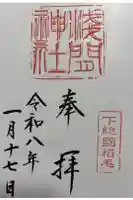 淺間
神社
下総國稲毛
奉拝
令和八年
一月十七日